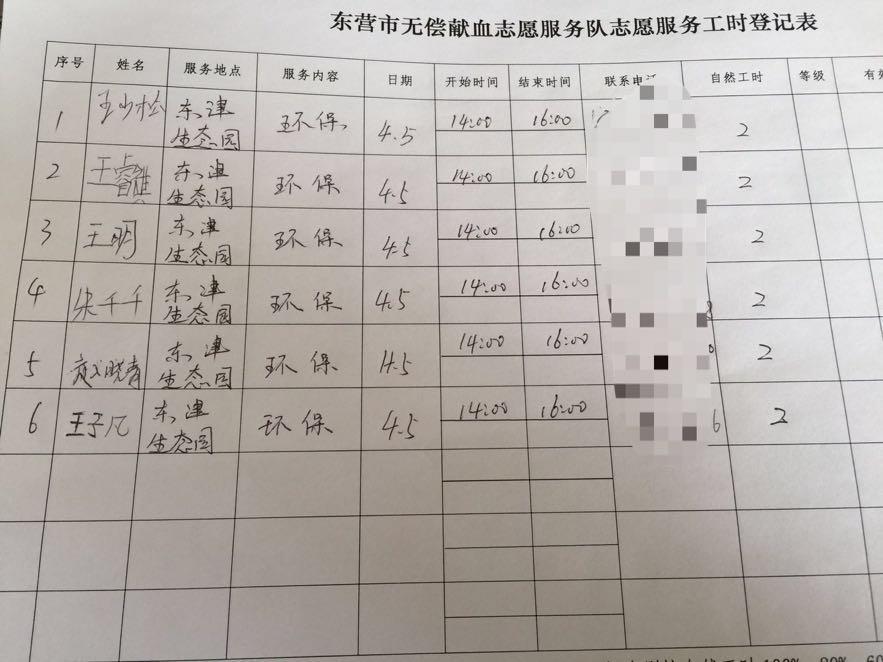 东营市无偿献血志愿服务队志愿服务工时登记表
序号 姓名 服务地点 服务内容 日期 开始时间 结束时间 联系电 自然工时 等级 有效
1 王少松 东津 环保 4.5 14:00 16:00 2
生态园
2 东津 环保 4.5 14:00 16:00 2
生态园
3 王明 东津 环保 4.5 14:00 16:00 2
生态园
4 朱千千 东津 环保 4.5 14:00 16:00 2
生态园
5 东津 环保 4.5 14:00 16:00 2
生态园
6 王子凡 东津 环保 4.5 14:00 16:00 6 2
生态园